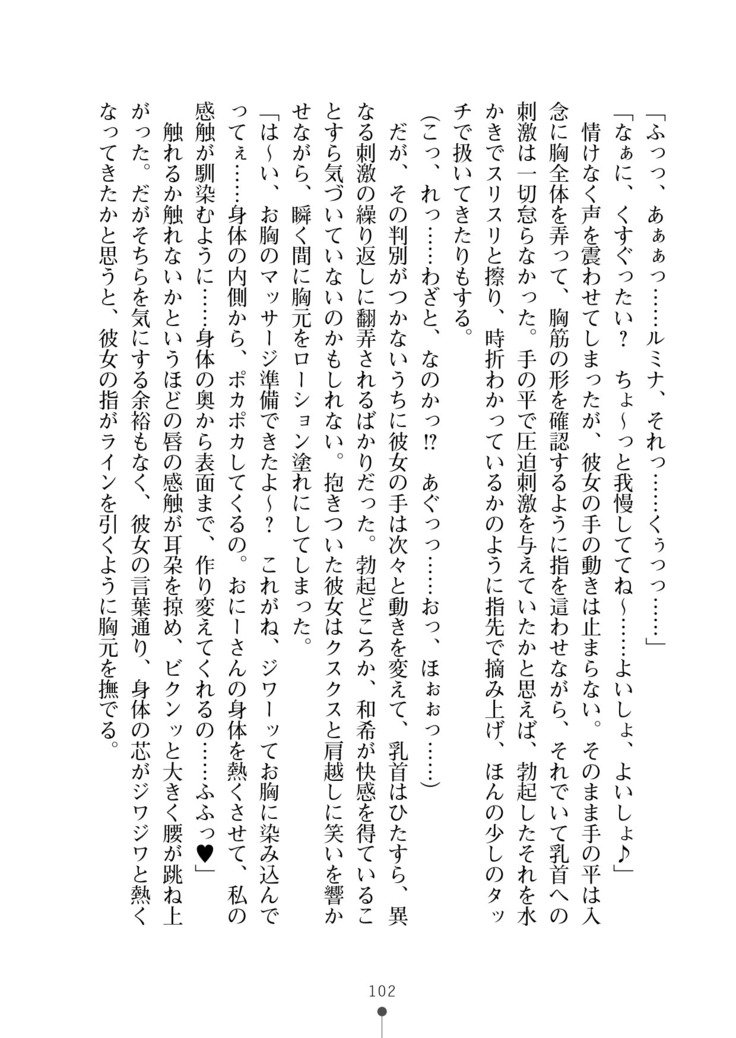 「ふっっ、あぁぁっ……ルミナ、それっ……くぅっっ……」
「なぁに、くすぐったい？　ちょ～っと我慢しててね～……よいしょ、よいしょ♪」
　情けなく声を震わせてしまったが、彼女の手の動きは止まらない。そのまま手の平は入
念に胸全体を弄って、胸筋の形を確認するように指を這わせながら、それでいて乳首への
刺激は一切怠らなかった。手の平で圧迫刺激を与えていたかと思えば、勃起したそれを水
かきでスリスリと擦り、時折わかっているかのように指先で摘み上げ、ほんの少しのタッ
チで扱いてきたりもする。
（こっ、れっ……わざと、なのかっ!?　あぐっっ……おっ、ほぉぉっ……）
　だが、その判別がつかないうちに彼女の手は次々と動きを変えて、乳首はひたすら、異
なる刺激の繰り返しに翻弄されるばかりだった。勃起どころか、和希が快感を得ているこ
とすら気づいていないのかもしれない。抱きついた彼女はクスクスと肩越しに笑いを響か
せながら、瞬く間に胸元をローション塗れにしてしまった。
「は～い、お胸のマッサージ準備できたよ～？　これがね、ジワーッてお胸に染み込んで
ってぇ……身体の内側から、ポカポカしてくるの。おにーさんの身体を熱くさせて、私の
感触が馴染むように……身体の奥から表面まで、作り変えてくれるの……ふふっ♥」
　触れるか触れないかというほどの唇の感触が耳朶を掠め、ビクンッと大きく腰が跳ね上
がった。だがそちらを気にする余裕もなく、彼女の言葉通り、身体の芯がジワジワと熱く
なってきたかと思うと、彼女の指がラインを引くように胸元を撫でる。
102